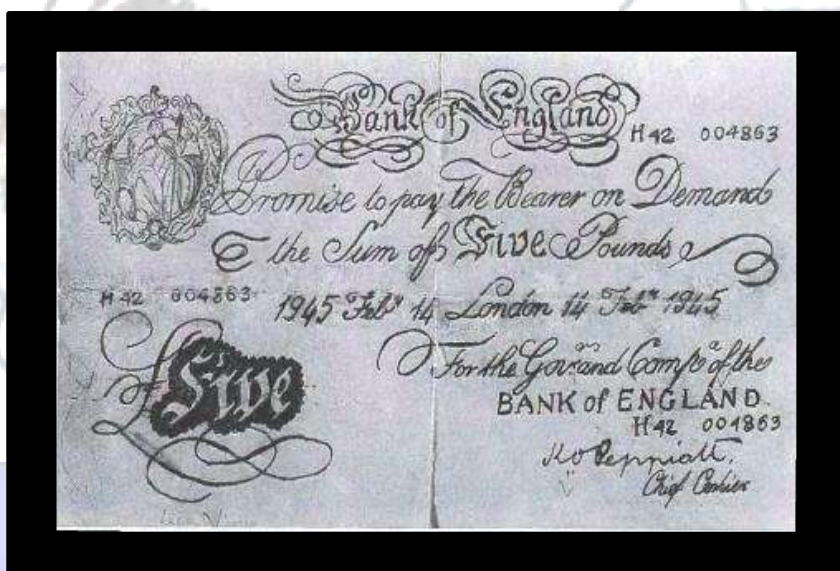 Bank of England
H 42 004863
Promise to pay the Bearer on Demand
the Sum of Five Pounds
H 42 004863
1945 Feby 14 London 14 Feby 1945
£Five
For the Govr. and Compa. of the
BANK of ENGLAND.
H 42 004863
K O Peppiatt.
Chief Cashier